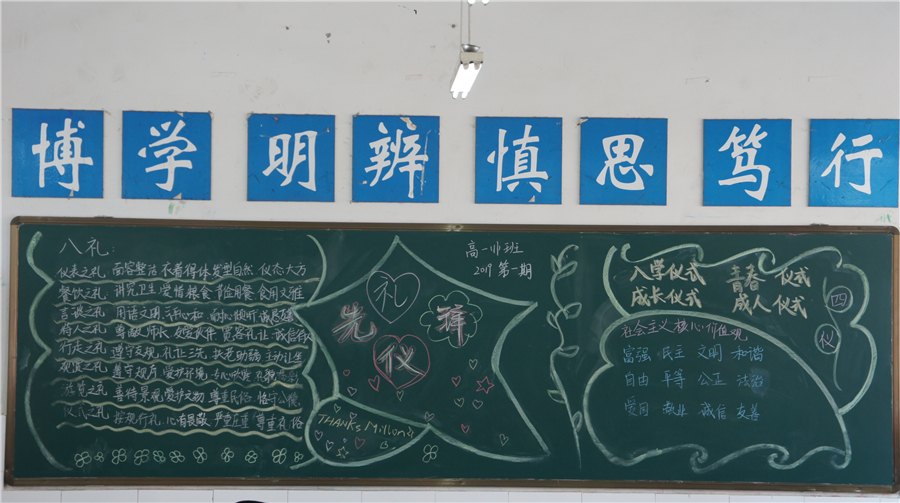 博学 明辨 慎思 笃行
八礼:
仪表之礼 面容整洁 衣着得体 发型自然 仪态大方
餐饮之礼 讲究卫生 爱惜粮食 节俭用餐 食用文雅
言谈之礼 用语文明 心平气和 耐心倾听 诚恳
待人之礼 尊敬师长 友爱伙伴 宽容礼让 诚信待人
行走之礼 遵守交规 礼让三先 扶老助弱 主动让座
观赏之礼 遵守秩序 爱护环境 专心欣赏 礼貌
游览之礼 善待景观 爱护文物 尊重民俗 恪守公德
仪式之礼 按规行礼 心存敬畏 严肃庄重 尊重礼俗
高一班
2017 第一期
礼
先 锋
仪
THANKS
入学仪式 青春仪式
成长仪式 成人仪式
四仪
社会主义核心价值观
富强 民主 文明 和谐
自由 平等 公正 法治
爱国 敬业 诚信 友善